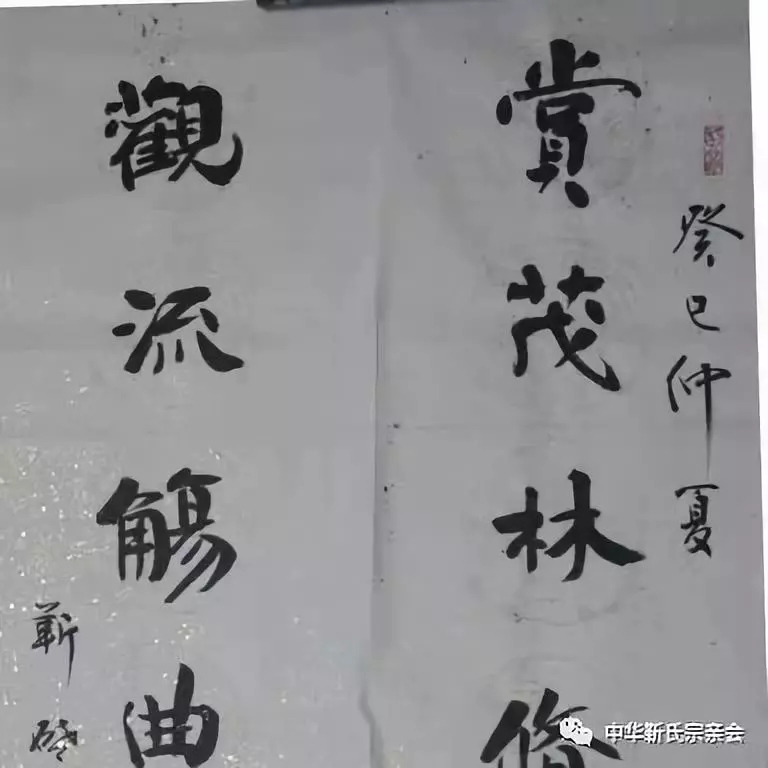 癸巳仲夏
賞茂林脩
觀流觴曲
靳
中华靳氏宗亲会